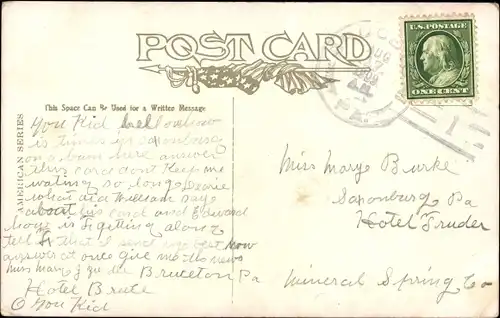 POST CARD
U.S. POSTAGE
ONE CENT
This Space Can Be Used for a Written Message
AMERICAN SERIES
You Kid hello how
is times in Saxonburg
on a bum here answer
this card dont Keep me
waiting so long Dearie
what did William say
about his card and Edward
how is he getting along
tell that I send my best now
answer at once give me the news
Miss Mary Bruceton Pa
Hotel Brute
O You Kid
Miss Marye Burke
Saxonburg Pa
Hotel Truder
Mineral Spring Co